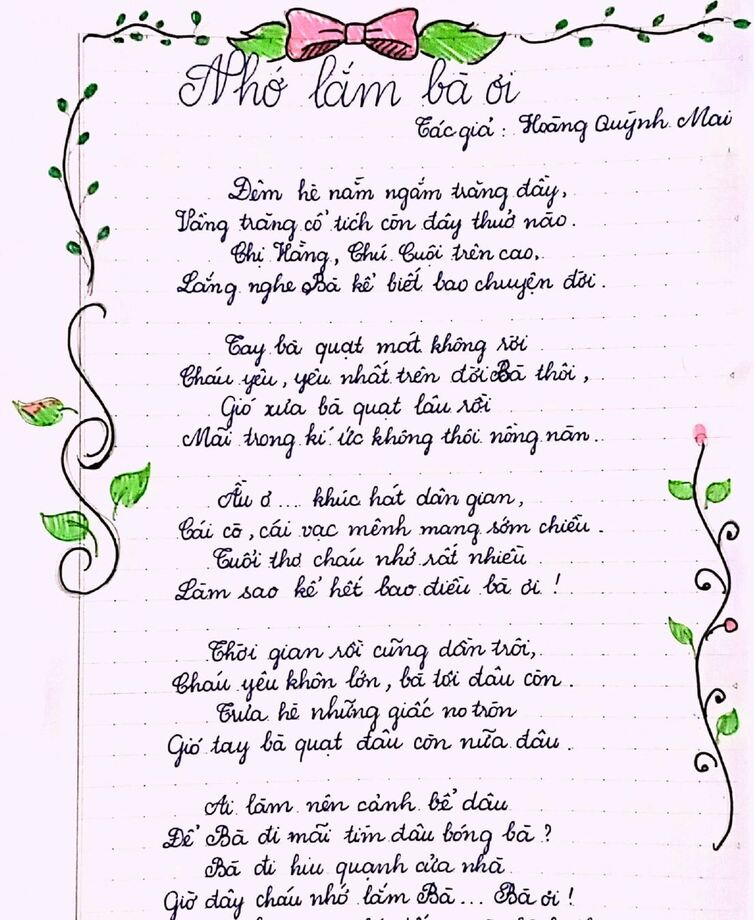 Nhớ lắm bà ơi
Tác giả: Hoàng Quỳnh Mai
Đêm hè nằm ngắm trăng đầy,
Vầng trăng cổ tích còn đây thuở nào.
Chị Hằng, Chú Cuội trên cao,
Lắng nghe Bà kể biết bao chuyện đời.
Tay bà quạt mát không rời
Cháu yêu, yêu nhất trên đời Bà thôi,
Gió xưa bà quạt lâu rồi
Mãi trong kí ức không thôi nồng nàn..
Ầu ơ.... khúc hát dân gian,
Cái cò, cái vạc mênh mang sớm chiều.
Tuổi thơ cháu nhớ rất nhiều
Làm sao kể hết bao điều bà ơi!
Thời gian rồi cũng dần trôi,
Cháu yêu khôn lớn, bà tôi đâu còn.
Trưa hè những giấc no tròn
Gió tay bà quạt đâu còn nữa đâu.
Ai làm nên cảnh bể dâu
Để Bà đi mãi tìm đâu bóng bà?
Bà đi hiu quạnh cửa nhà
Giờ đây cháu nhớ lắm Bà... Bà ơi!